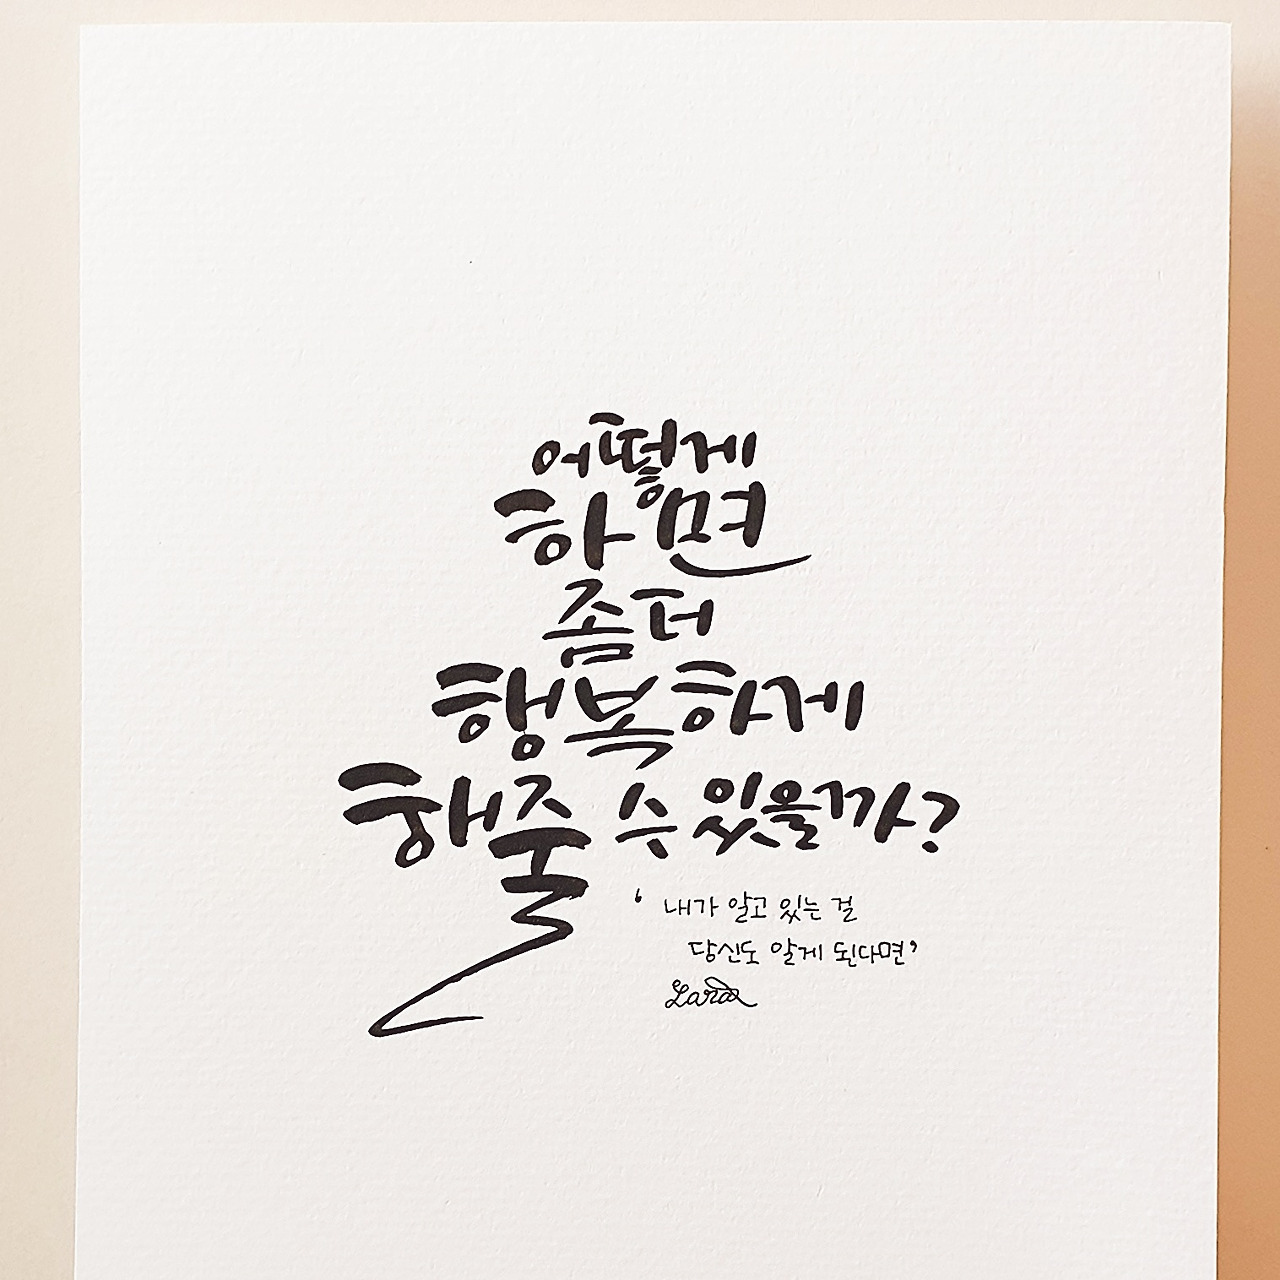 어떻게
하면
좀 더
행복하게
해줄 수 있을까?
‘ 내가 알고 있는 걸
당신도 알게 된다면’
Lara